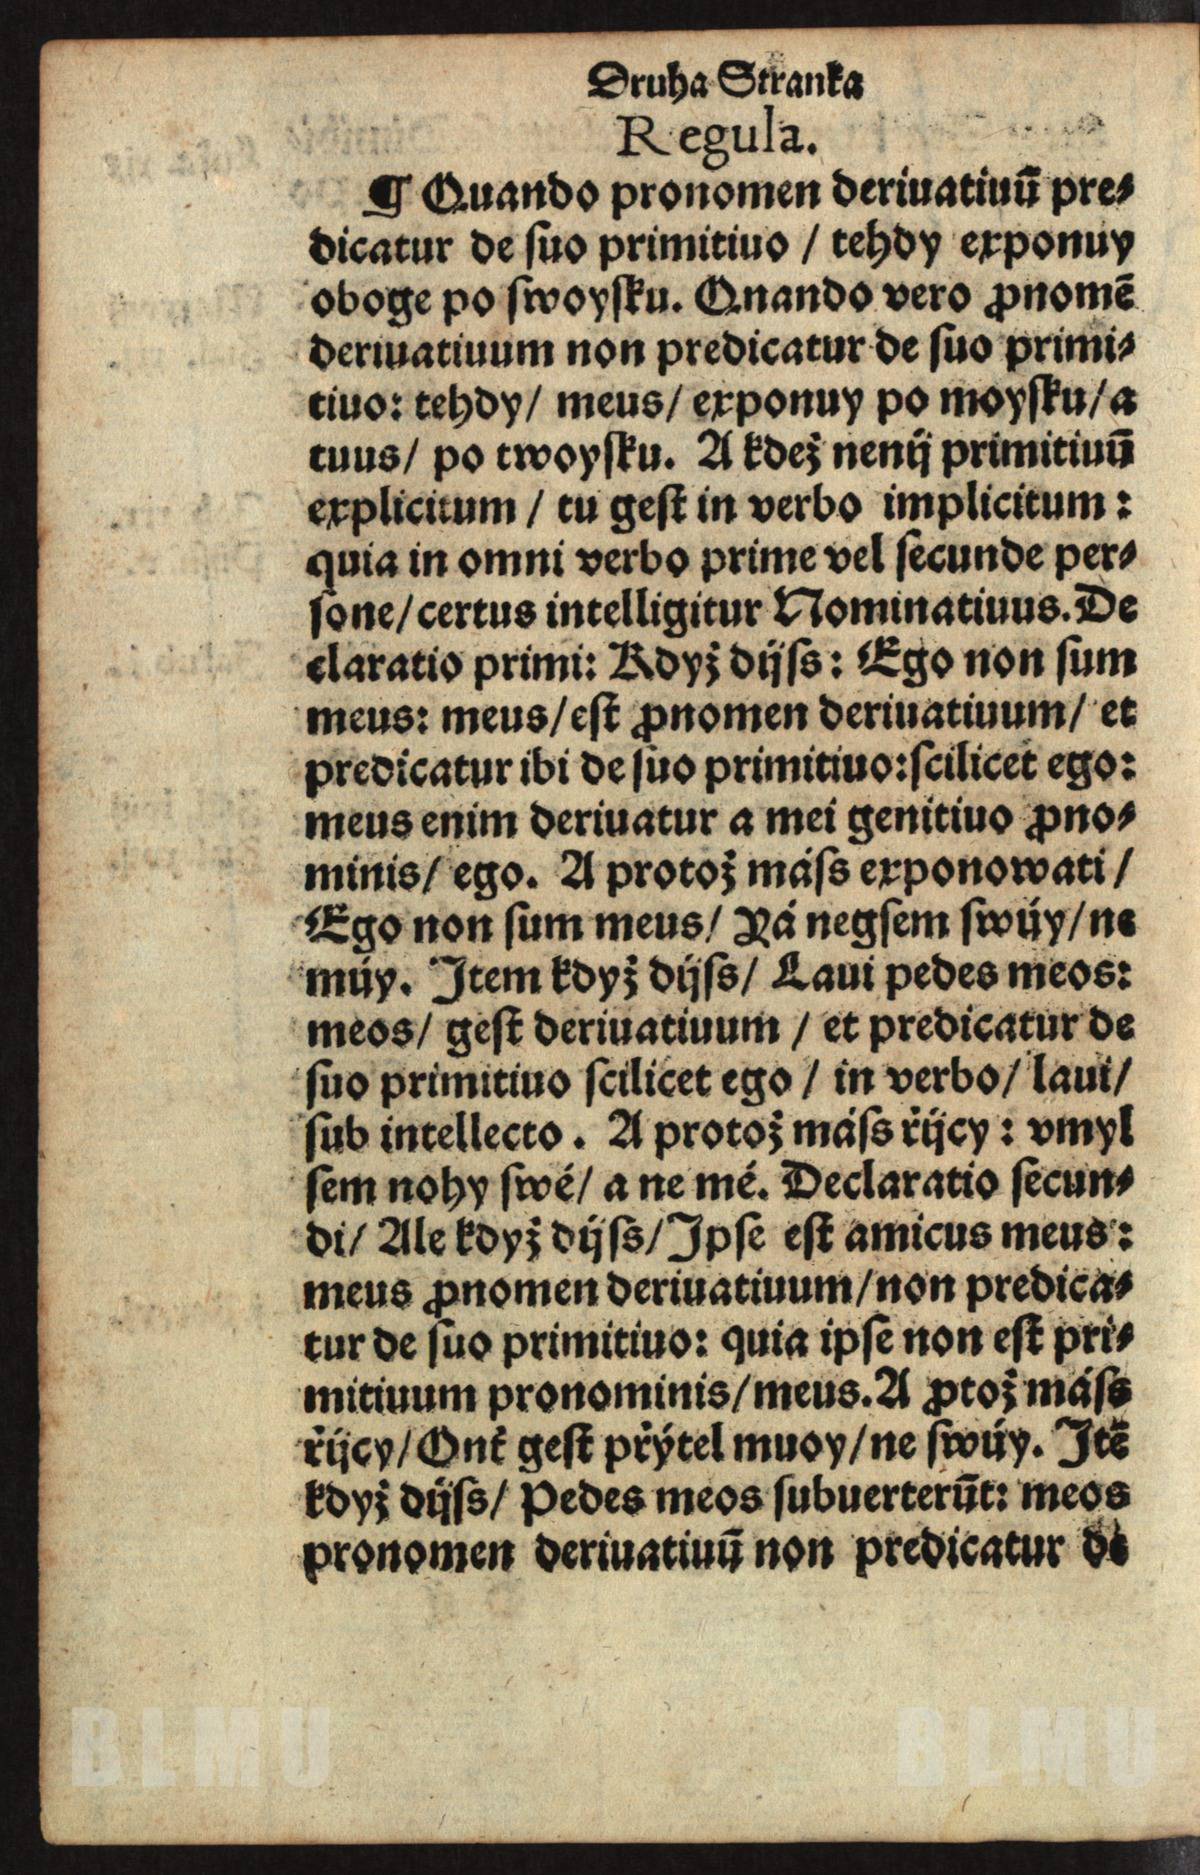 Druha Stranka
Regula.
¶ Quando pronomen deriuatiuū pre⸗
dicatur de suo primitiuo / tehdy exponuy
oboge po swoysku. Qnando vero ꝓnomē
deriuatiuum non predicatur de suo primi⸗
tiuo: tehdy/ meus/ exponuy po moysku/ a
tuus/ po twoysku. A kdež nenij primitiuū
explicitum / tu gest in verbo implicitum :
quia in omni verbo prime vel secunde per⸗
sone/ certus intelligitur Nominatiuus. De
claratio primi: Když dijss : Ego non sum
meus: meus/ est ꝓnomen deriuatiuum/ et
predicatur ibi de suo primitiuo: scilicet ego:
meus enim deriuatur a mei genitiuo ꝓno⸗
minis/ ego. A protož máss exponowati /
Ego non sum meus/ Yá negsem swúy/ ne
múy. Item když dijss/ Laui pedes meos:
meos/ gest deriuatiuum / et predicatur de
suo primitiuo scilicet ego / in verbo/ laui/
sub intellecto . A protož máss řijcy : vmyl
sem nohy swé/ a ne mé. Declaratio secun⸗
di/ Ale když dijss/ Ipse est amicus meus :
meus ꝓnomen deriuatiuum/ non predica⸗
tur de suo primitiuo: quia ipse non est pri⸗
mitiuum pronominis/ meus. A ꝓtož máss
řijcy/ Onť gest přýtel muoy/ ne swúy. Itē
když dijss/ Pedes meos subuerterūt: meos
pronomen deriuatiuū non predicatur de
BLMU BLMU